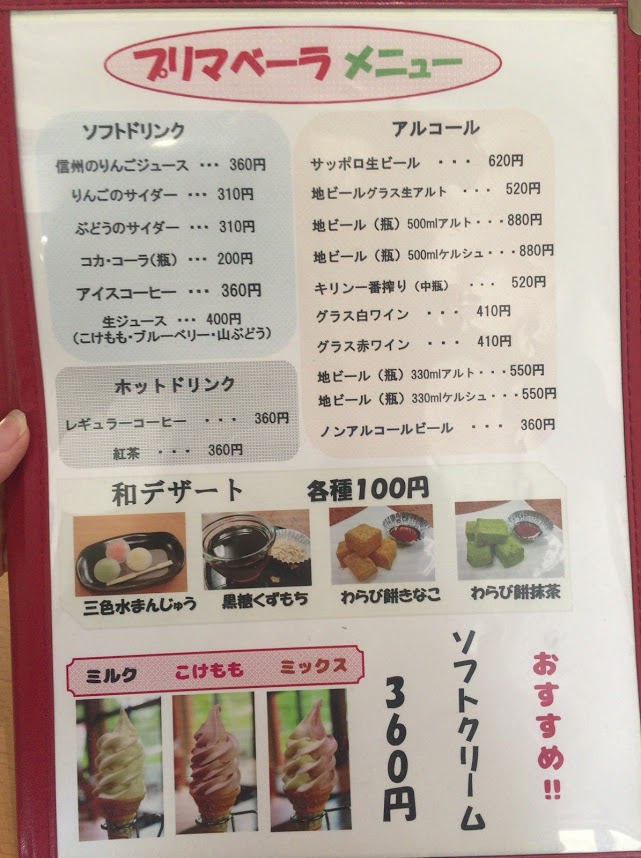 プリマベーラ メニュー
ソフトドリンク
信州のりんごジュース ・・・ 360円
りんごのサイダー ・・・ 310円
ぶどうのサイダー ・・・ 310円
コカ・コーラ(瓶) ・・・ 200円
アイスコーヒー ・・・ 360円
生ジュース ・・・ 400円
(こけもも・ブルーベリー・山ぶどう)
ホットドリンク
レギュラーコーヒー ・・・ 360円
紅茶 ・・・ 360円
アルコール
サッポロ生ビール ・・・ 620円
地ビールグラス生アルト ・・・ 520円
地ビール(瓶)500mlアルト・・・880円
地ビール(瓶)500mlケルシュ・・・880円
キリン一番搾り(中瓶) ・・・ 520円
グラス白ワイン ・・・ 410円
グラス赤ワイン ・・・ 410円
地ビール(瓶)330mlアルト・・・550円
地ビール(瓶)330mlケルシュ・・・550円
ノンアルコールビール ・・・ 360円
和デザート 各種100円
三色水まんじゅう 黒糖くずもち わらび餅きなこ わらび餅抹茶
ミルク こけもも ミックス
おすすめ!!
ソフトクリーム
360円